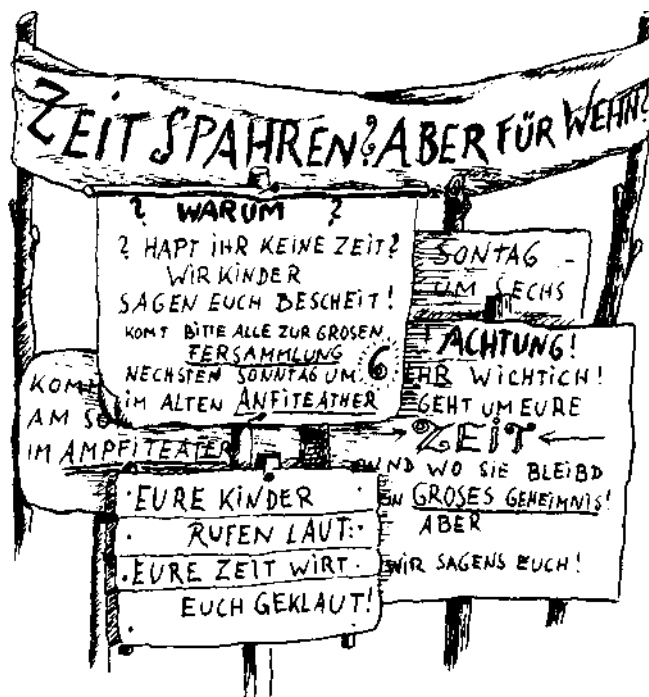 ZEIT SPAHREN? ABER FÜR WEHN?
? WARUM ?
? HAPT IHR KEINE ZEIT?
WIR KINDER
SAGEN EUCH BESCHEIT!
KOMT BITTE ALLE ZUR GROSEN
FERSAMMLUNG
NECHSTEN SONNTAG UM 6
IM ALTEN ANFITEATHER
SONTAG
UM SECHS
KOM
AM SO
IM AMPFITEATER
ACHTUNG!
WICHTICH!
GEHT UM EURE
ZEIT
UND WO SIE BLEIBD
GROSES GEHEIMNIS!
ABER
WIR SAGENS EUCH!
EURE KINDER
RUFEN LAUT:
EURE ZEIT WIRT
EUCH GEKLAUT!